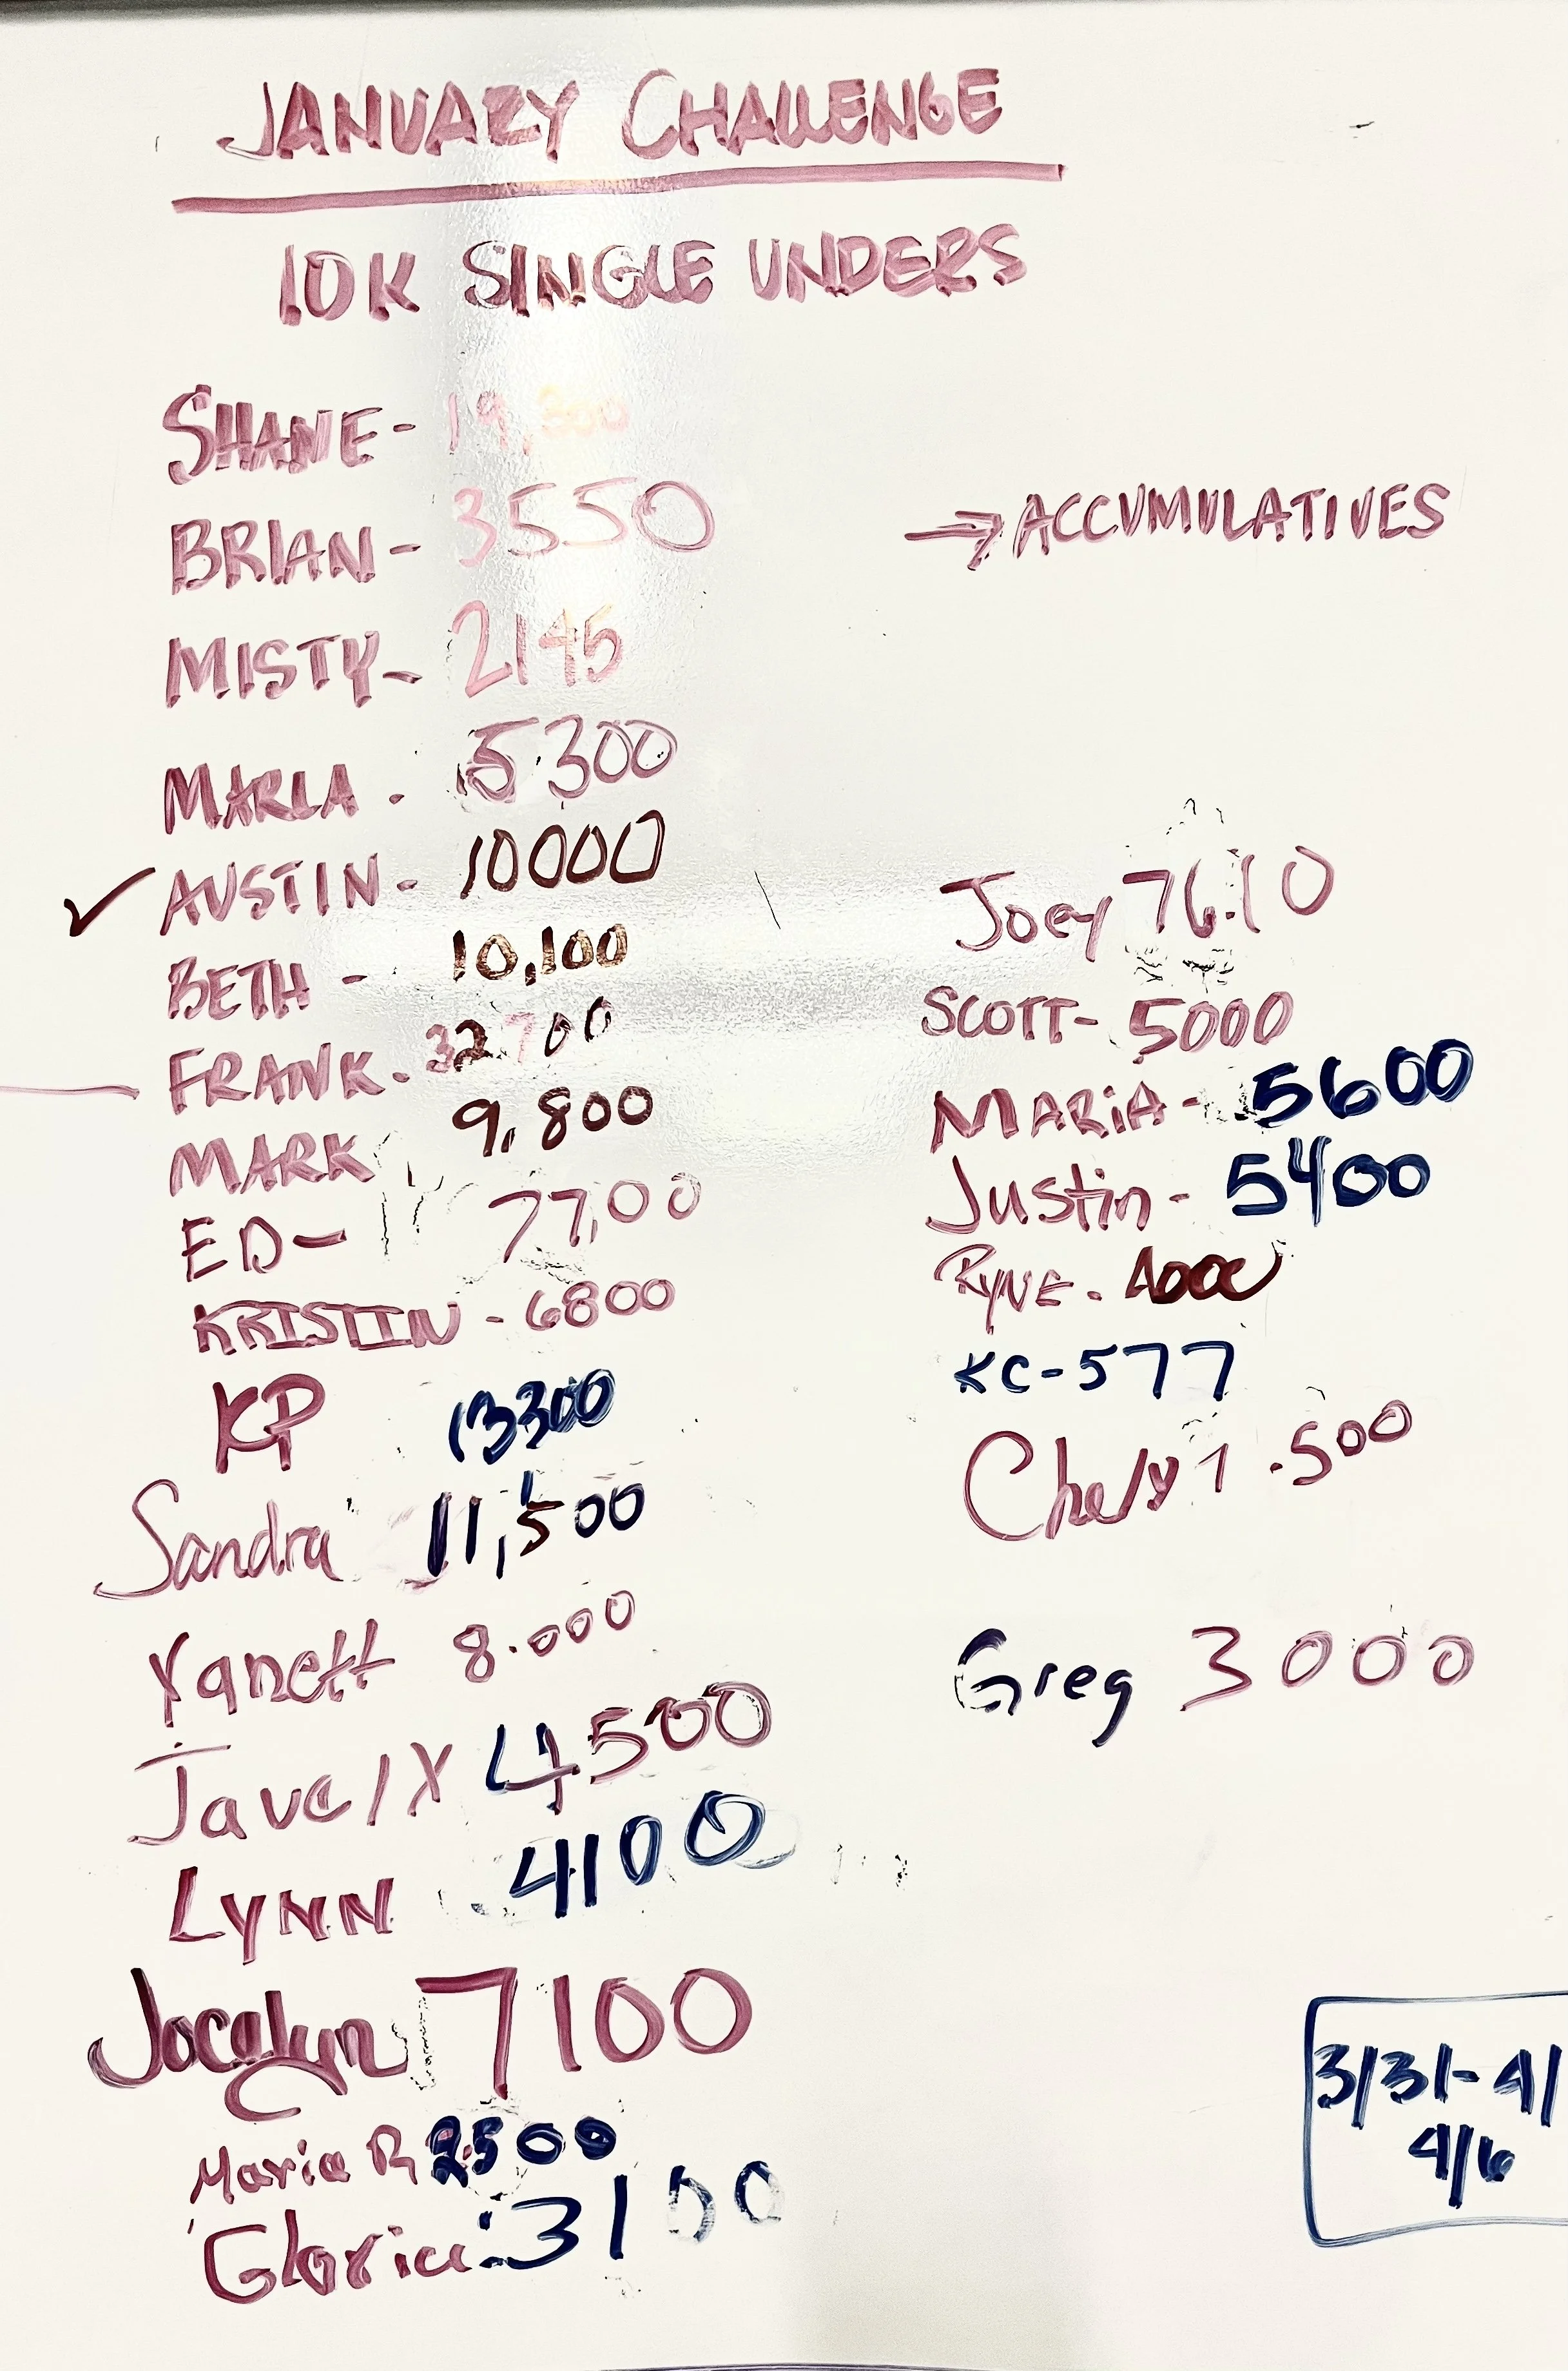 JANUARY CHALLENGE
10K SINGLE UNDERS
SHANE - 19,300
BRIAN - 3550
MISTY - 2145
MARLA - 5300
✓ AUSTIN - 10000
BETH - 10,100
FRANK - 32700
MARK 9,800
ED - 77,00
KRISTIN - 6800
KP 13300
Sandra 11,500
Yanett 8.000
LYNN 4100
Jocelyn 7100
Maria R 2500
Gloria: 3100
→ ACCUMULATIVES
Joey 7610
SCOTT - 5000
MARiA - 5600
Justin - 5400
RYNE - 4000
KC - 577
1.500
Greg 3000
3/31 - 4/
4/6